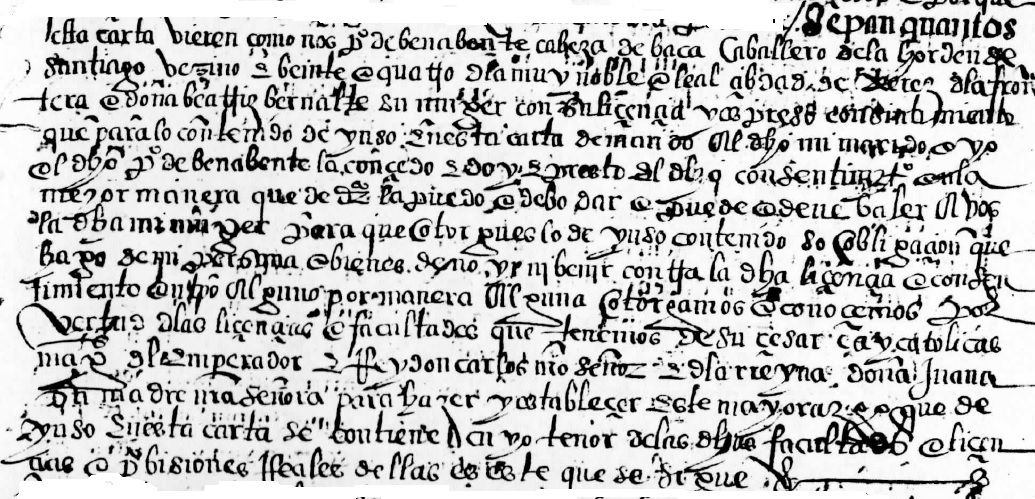 Sepan quantos
esta carta vieren como nos p° de benabente cabeza de baca caballero dela horden de
santiago vezino e beinte e quatro dla muy noble e leal cibdad de xerez dla fron
tera e doña beatriz bernalte su muger con su liçençia y espreso consentimiento
que para lo contenido de yuso en esta carta demando al dho mi marido e yo
el dho p° de benabente la conçedo e do y e presto el dho consentimyto en la
mejor manera que de dro la puedo e debo dar e puede e deue baler a vos
la dha mi muger para que otorgues lo de yuso contenido so obligaçion que
hago de mi persona e bienes de no yr ni benir contra la dha liçençia e consen
timiento en tpo alguno por manera alguna e otorgamos e conocemos por
vertud dlas liçençias e facultades que tenemos de su çesar ea y catolicas
magd dl emperador e rrey don carlos nro señor e dla rreyna doña Juana
su madre nra señora para hazer y establecer este mayorazgo que de
yuso en esta carta se contiene su thenor delas dhas facultades e liçen
çias e probisiones rreales dellas es este que se sigue